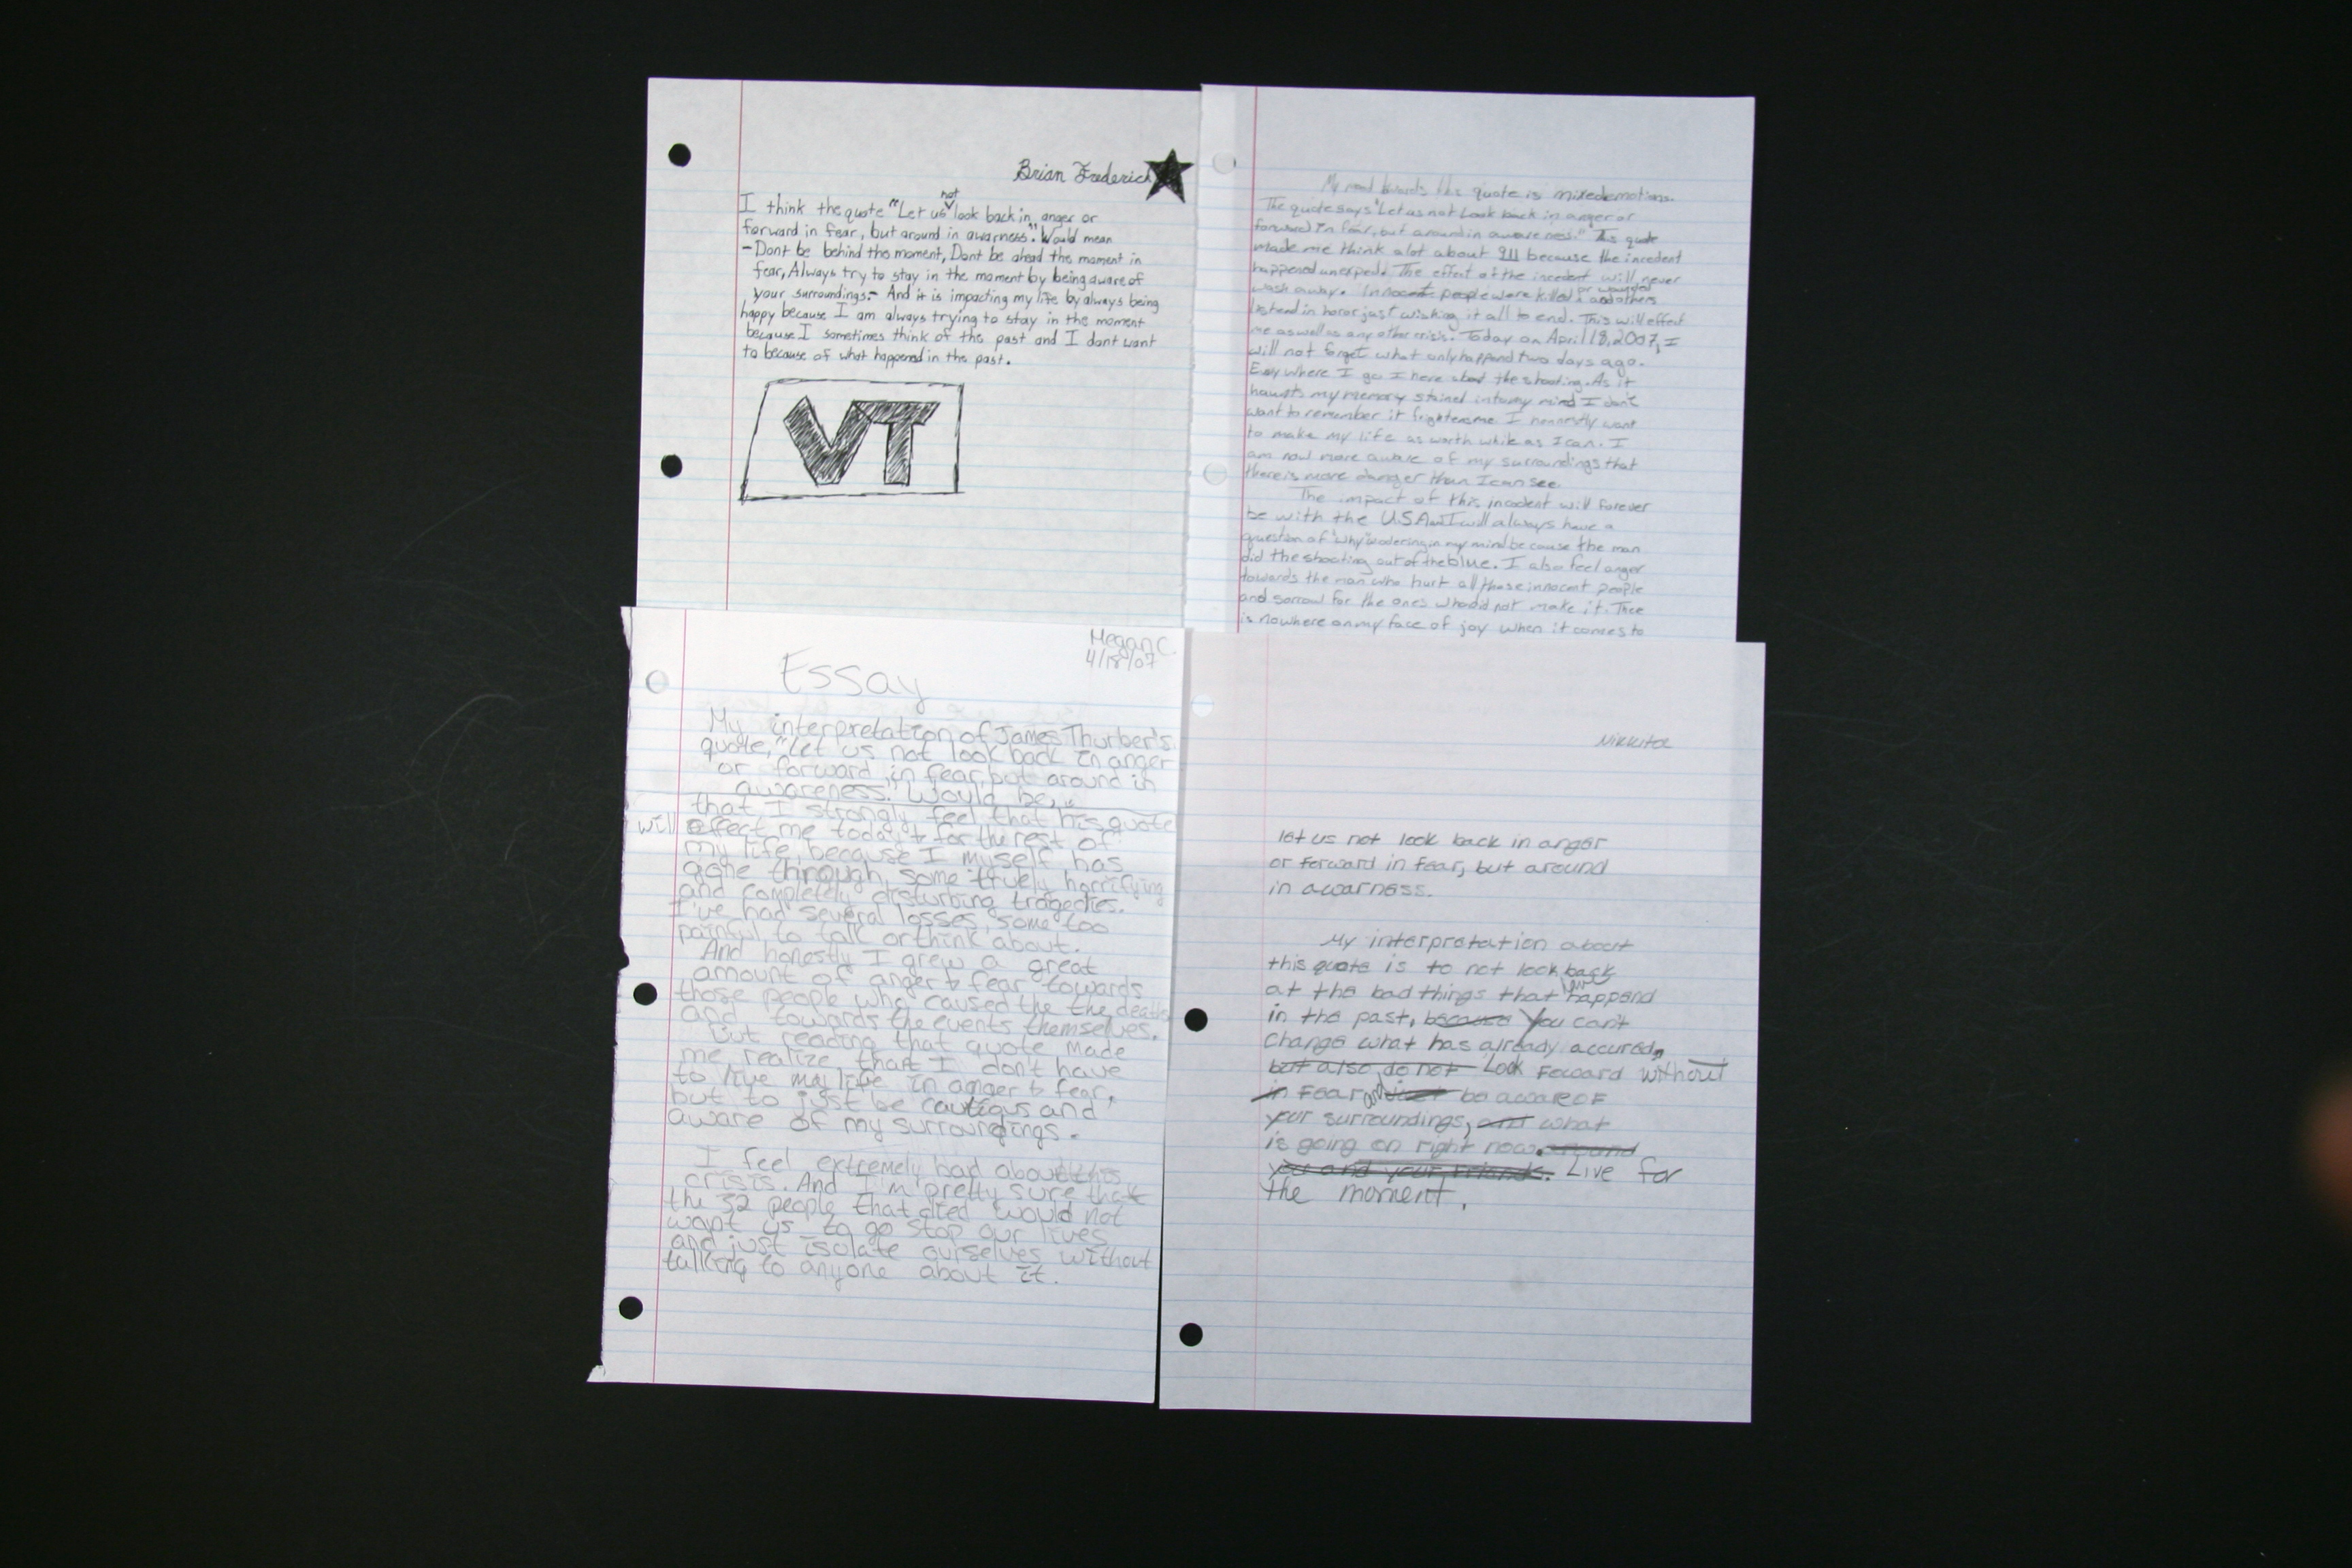 Brian Frederick
I think the quote "Let us not look back in anger or
forward in fear, but around in awarness". Would mean
- Dont be behind the moment, Dont be ahead the moment in
fear, Always try to stay in the moment by being aware of
your surroundings.- And it is impacting my life by always being
happy because I am always trying to stay in the moment
because I sometimes think of the past and I dont want
to because of what happened in the past.
VT
My towards this quote is mixedemotions.
The quote says "Let us not Look back in anger or
forward in fear, but around in awareness." This quote
made me think alot about 911 because the incedent
happened The effect of the incedent will never
wash away. Innocent people were killed or and others
in horor just wishing it all to end. This will effect
me as well as any other crisis. Today on April 18, 2007, I
will not forget what only happend two days ago.
where I go I here about the shooting. As it
haunts my memory stained into my mind I don't
want to remember it frightens me I want
to make my life as worth while as I can. I
am now more aware of my surroundings that
there is more danger than I can see.
The impact of this incedent will forever
be with the U.S.A and I will always have a
question of "Why" in my mind because the man
did the shooting out of the blue. I also feel anger
towards the man who hurt all those innocent people
and sorrow for the ones who did not make it. There
is nowhere on my face of joy when it comes to
Megan C.
4/18/07
Essay
My interpretation of James Thurber's
quote, "Let us not look back in anger
or forward in fear, but around in
awareness." Would be,
that I strongly feel that his quote
will effect me today & for the rest of
my life, because I myself has
gone through some truely horrifying
and completely disturbing tragedies.
I've had several losses, some too
painful to talk or think about.
And honestly I grew a great
amount of anger & fear towards
those people who caused the the deaths
and towards the events themselves.
But reading that quote made
me realize that I don't have
to live my life in anger & fear,
but to just be cautious and
aware of my surroundings.
I feel extremely bad about this
crisis. And I'm pretty sure that
the 32 people that died would not
want us to go stop our lives
and just isolate ourselves without
talking to anyone about it.
Nikkita
let us not look back in anger
or forward in fear, but around
in awarness.
My interpretation about
this quote is to not look back
at the bad things that have happend
in the past, because You can't
change what has already accured.
but also do not Look foward without
in fear and just be aware of
your surroundings, and what
is going on right now. around
you and your friends. Live for
the moment.